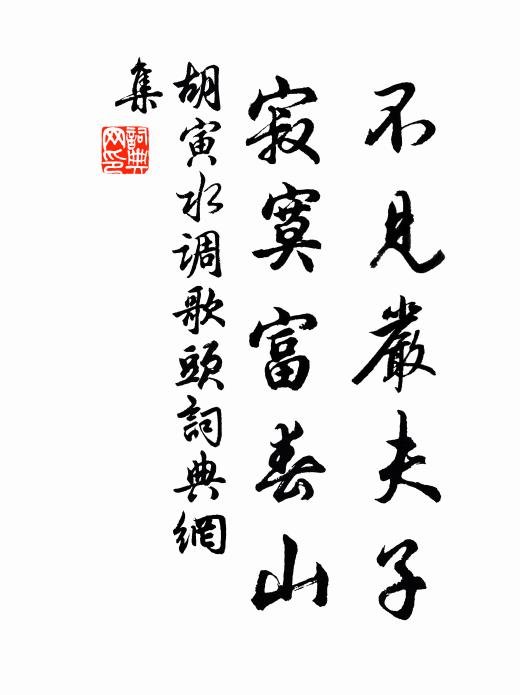 不見嚴夫子
寂寞富春山
胡寅水调歌頭詞典網
集
詞典网印